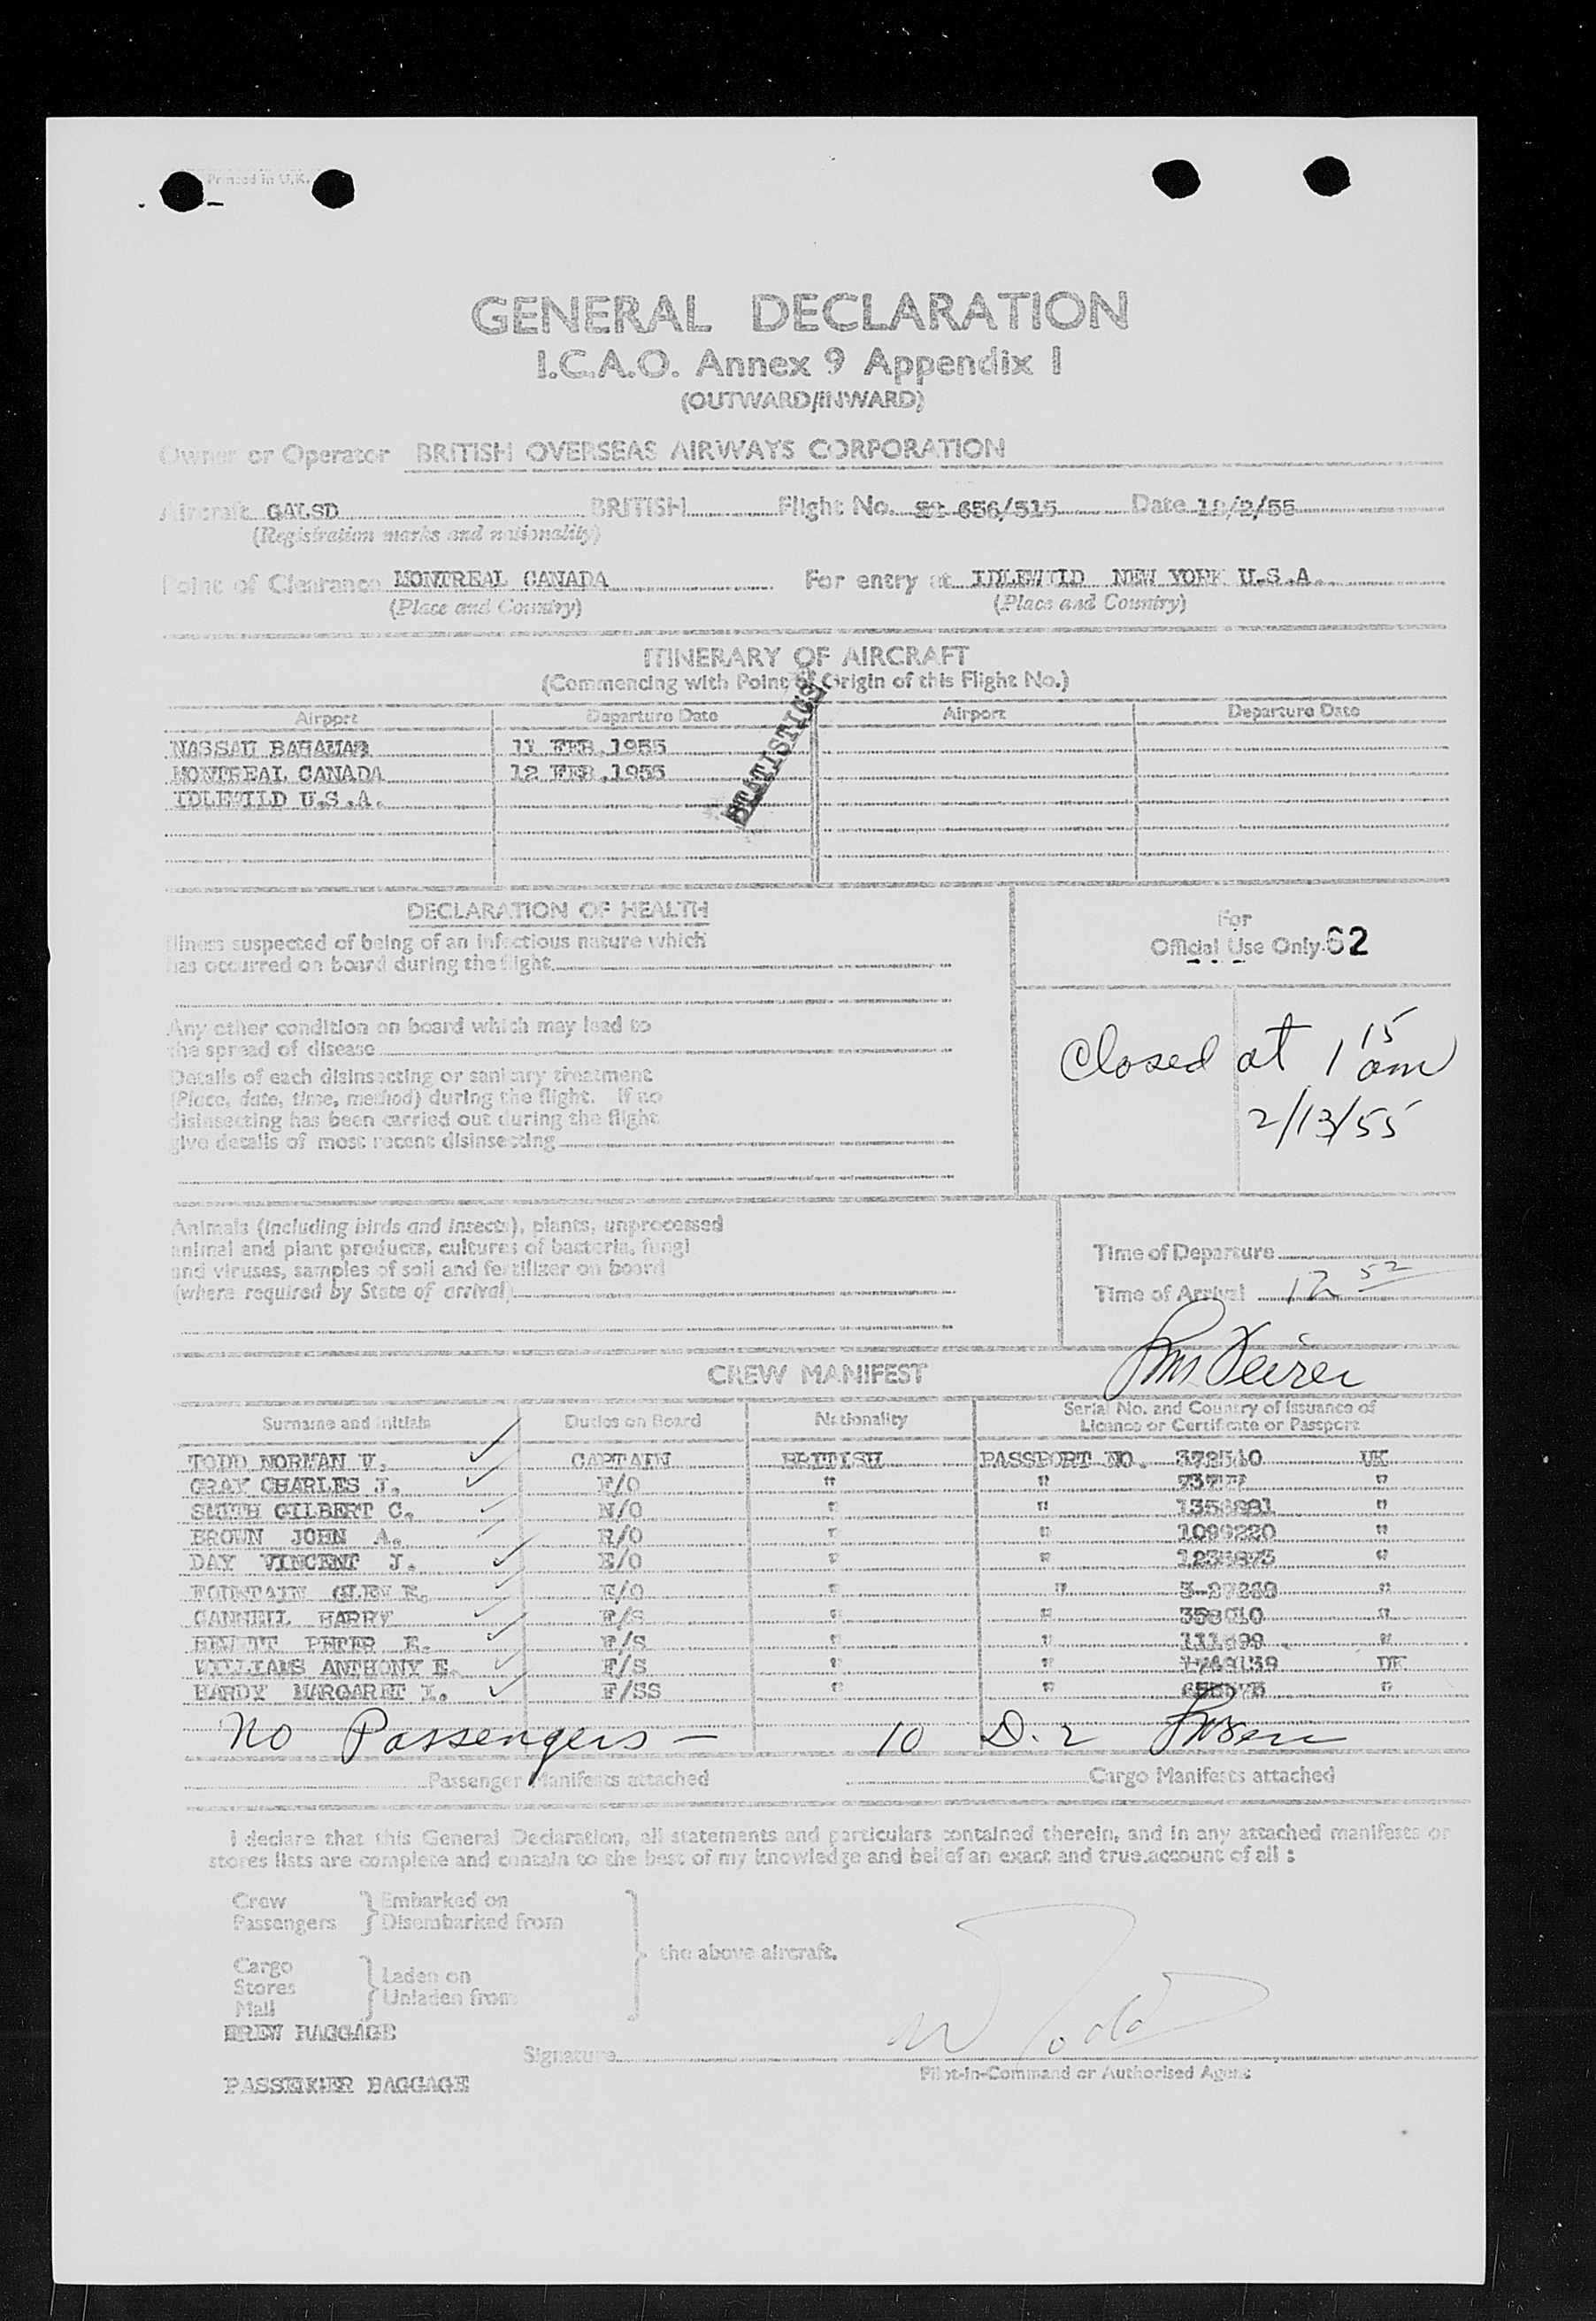 Printed in U.K.
GENERAL DECLARATION
I.C.A.O. Annex 9 Appendix I
(OUTWARD/INWARD)
Owner or Operator BRITISH OVERSEAS AIRWAYS CORPORATION
Aircraft GALSD BRITISH Flight No. 656/515 Date 12/2/55
(Registration marks and nationality)
Point of Clearance MONTREAL CANADA For entry at IDLEWILD NEW YORK U.S.A.
(Place and Country) (Place and Country)
ITINERARY OF AIRCRAFT
(Commencing with Point of Origin of this Flight No.)
STATISTICS
Airport Departure Date Airport Departure Date
NASSAU BAHAMAS 11 FEB.1955
MONTREAL CANADA 12 FEB.1955
IDLEWILD U.S.A.
DECLARATION OF HEALTH
Illness suspected of being of an infectious nature which
has occurred on board during the flight
Any other condition on board which may lead to
the spread of disease
Details of each disinsecting or sanitary treatment
(Place, date, time, method) during the flight. If no
disinsecting has been carried out during the flight
give details of most recent disinsecting
For
Official Use Only 62
Closed at 1 15 am
2/13/55
Animals (including birds and insects), plants, unprocessed
animal and plant products, cultures of bacteria, fungi
and viruses, samples of soil and fertilizer on board
(where required by State of arrival)
Time of Departure
Time of Arrival 12 52
CREW MANIFEST
Surname and Initials Duties on Board Nationality Serial No. and Country of Issuance of
Licence or Certificate or Passport
TODD NORMAN V. CAPTAIN BRITISH PASSPORT NO. UK
GRAY CHARLES J. F/O " " "
SMITH GILBERT C. N/O " " "
BROWN JOHN A. R/O " " 1099220 "
DAY VINCENT J. E/O " " "
FOUNTAIN GLEN E/O " " "
CANNELL HARRY F/S " " "
PETER E. F/S " " "
WILLIAMS ANTHONY E. F/S " "
HARDY MARGARET I. F/SS " " "
No Passengers — 10 D. 2
Passenger Manifests attached Cargo Manifests attached
I declare that this General Declaration, all statements and particulars contained therein, and in any attached manifests or
stores lists are complete and contain to the best of my knowledge and belief an exact and true account of all :
Crew
Passengers } Embarked on
Disembarked from
Cargo
Stores
Mail } Laden on
Unladen from
} the above aircraft.
CREW BAGGAGE
Signature N Todd
Pilot-in-Command or Authorised Agent
PASSENGER BAGGAGE